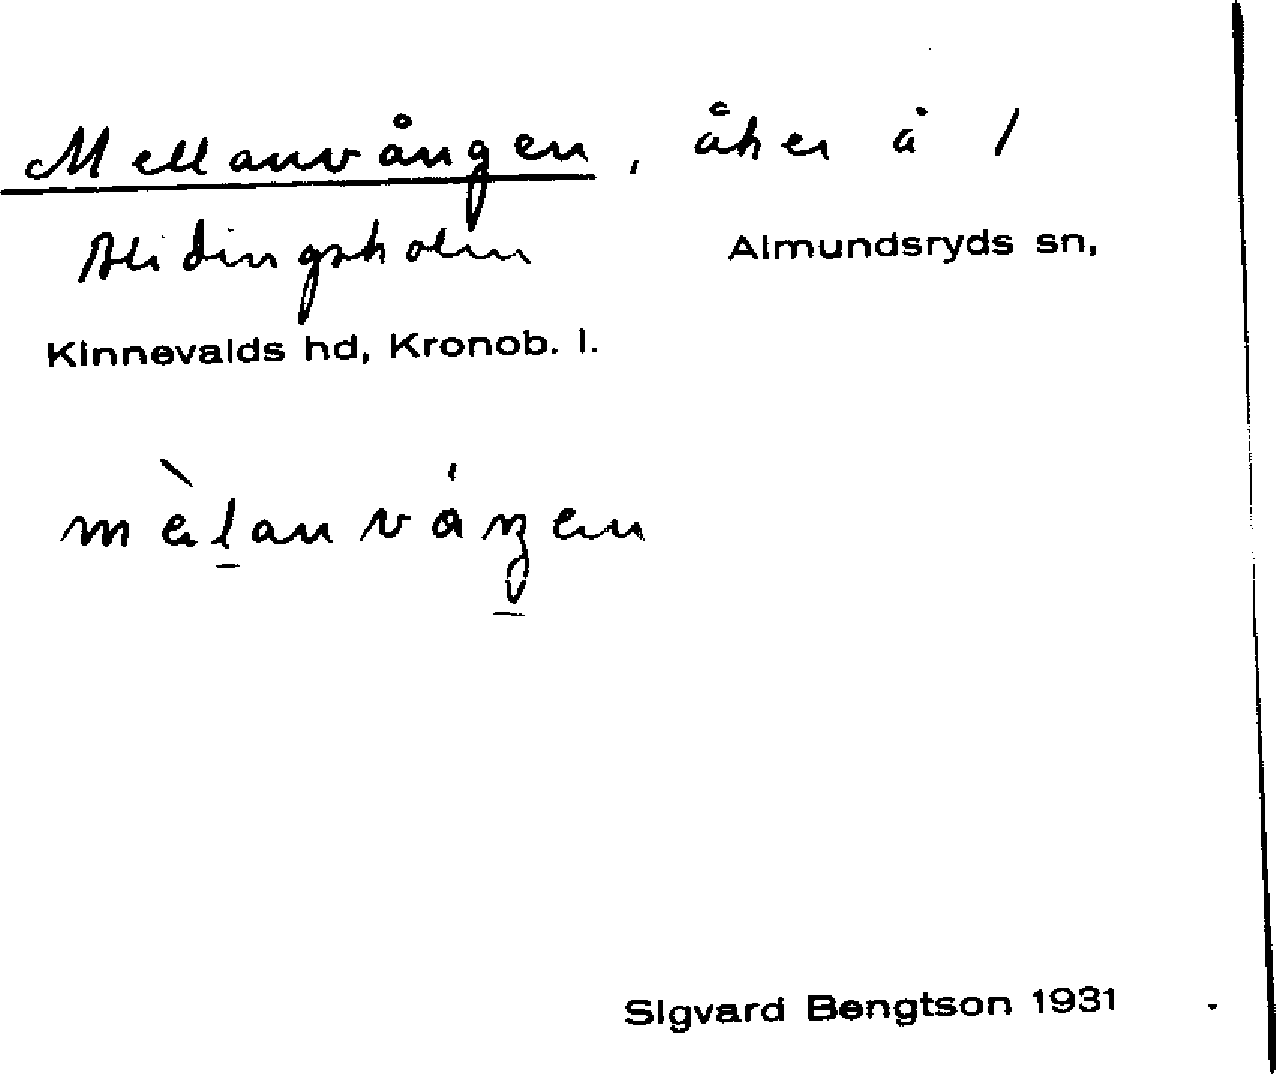 Mellanvången, åker å 1
Blidingsholm Almundsryds sn,
Kinnevalds hd, Kronob. l.
mèlanváŋen
Sigvard Bengtson 1931